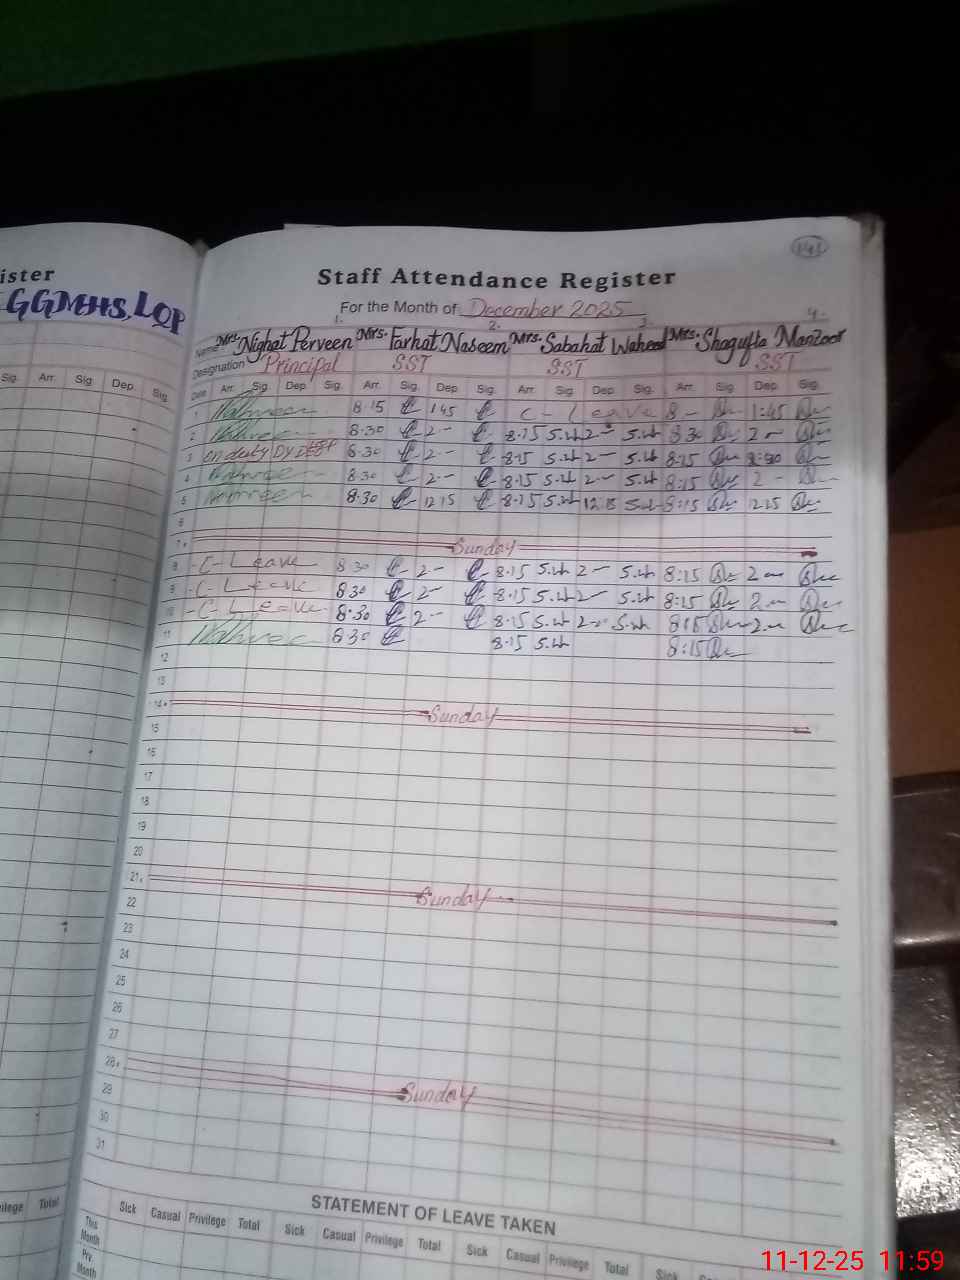 ister
GGMHS, LQP
141
Staff Attendance Register
For the Month of December 2025
1. 2. 3. 4.
Name Mrs. Nighat Perveen Mrs. Farhat Naseem Mrs. Sabahat Waheed Mrs. Shagufta Manzoor
Designation Principal SST SST SST
Sig. Arr. Sig. Dep. Sig.
Date Arr. Sig. Dep. Sig. Arr. Sig. Dep. Sig. Arr. Sig. Dep. Sig. Arr. Sig. Dep. Sig.
1 8.15 1.45 C-Leave 8- 1:45
2 8.30 2- 8.15 S.W 2- S.W 8.30 2-
3 on duty Dy 8.30 2- 8.15 S.W 2- S.W 8:15
4 8.30 2- 8.15 S.W 2- S.W 8:15 2-
5 8.30 12.15 8.15 S.W 12.15 S.W 8:15 12.15
6
7 Sunday
8 -C-Leave 8.30 2- 8.15 S.W 2- S.W 8:15 2-
9 -C-Leave 8.30 2- 8.15 S.W 2- S.W 8:15 2-
10 -C-Leave 8.30 2- 8.15 S.W 2- S.W 8:15 2-
11 8.30 8.15 S.W 8:15
12
13
14 Sunday
15
16
17
18
19
20
21 Sunday
22
23
24
25
26
27
28 Sunday
29
30
31
STATEMENT OF LEAVE TAKEN
vilege Total
Sick Casual Privilege Total Sick Casual Privilege Total Sick Casual Privilege Total Sick
This Month
Prv. Month
11-12-25 11:59